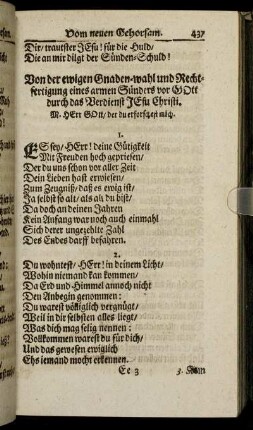 Vom neuen Gehorsam. 437
Dir/ trautster JEsu! für die Huld/
Die an mir dilgt der Sünden-Schuld!
Von der ewigen Gnaden-wahl und Recht-
fertigung eines armen Sünders vor GOtt
durch das Verdienst JEsu Christi.
M. HErr GOtt/ der du erforschest mich.
1.
ES sey/ HErr! deine Gütigkeit
Mit Freuden hoch gepriesen/
Der du uns schon vor aller Zeit
Dein Lieben hast erwiesen/
Zum Zeugniß/ daß es ewig ist/
Ja selbst so alt/ als alt du bist/
Da doch an deinen Jahren
Kein Anfang war noch auch einmahl
Sich derer ungezehlte Zahl
Des Endes darff befahren.
2.
Du wohntest/ HErr! in deinem Licht/
Wohin niemand kan kommen/
Da Erd und Himmel annoch nicht
Den Anbegin genommen:
Du warest völliglich vergnügt/
Weil in dir selbsten alles liegt/
Was dich mag selig nennen:
Vollkommen warest du für dich/
Und das gewesen ewiglich
Ehs iemand mocht erkennen.
Ee 3 3.